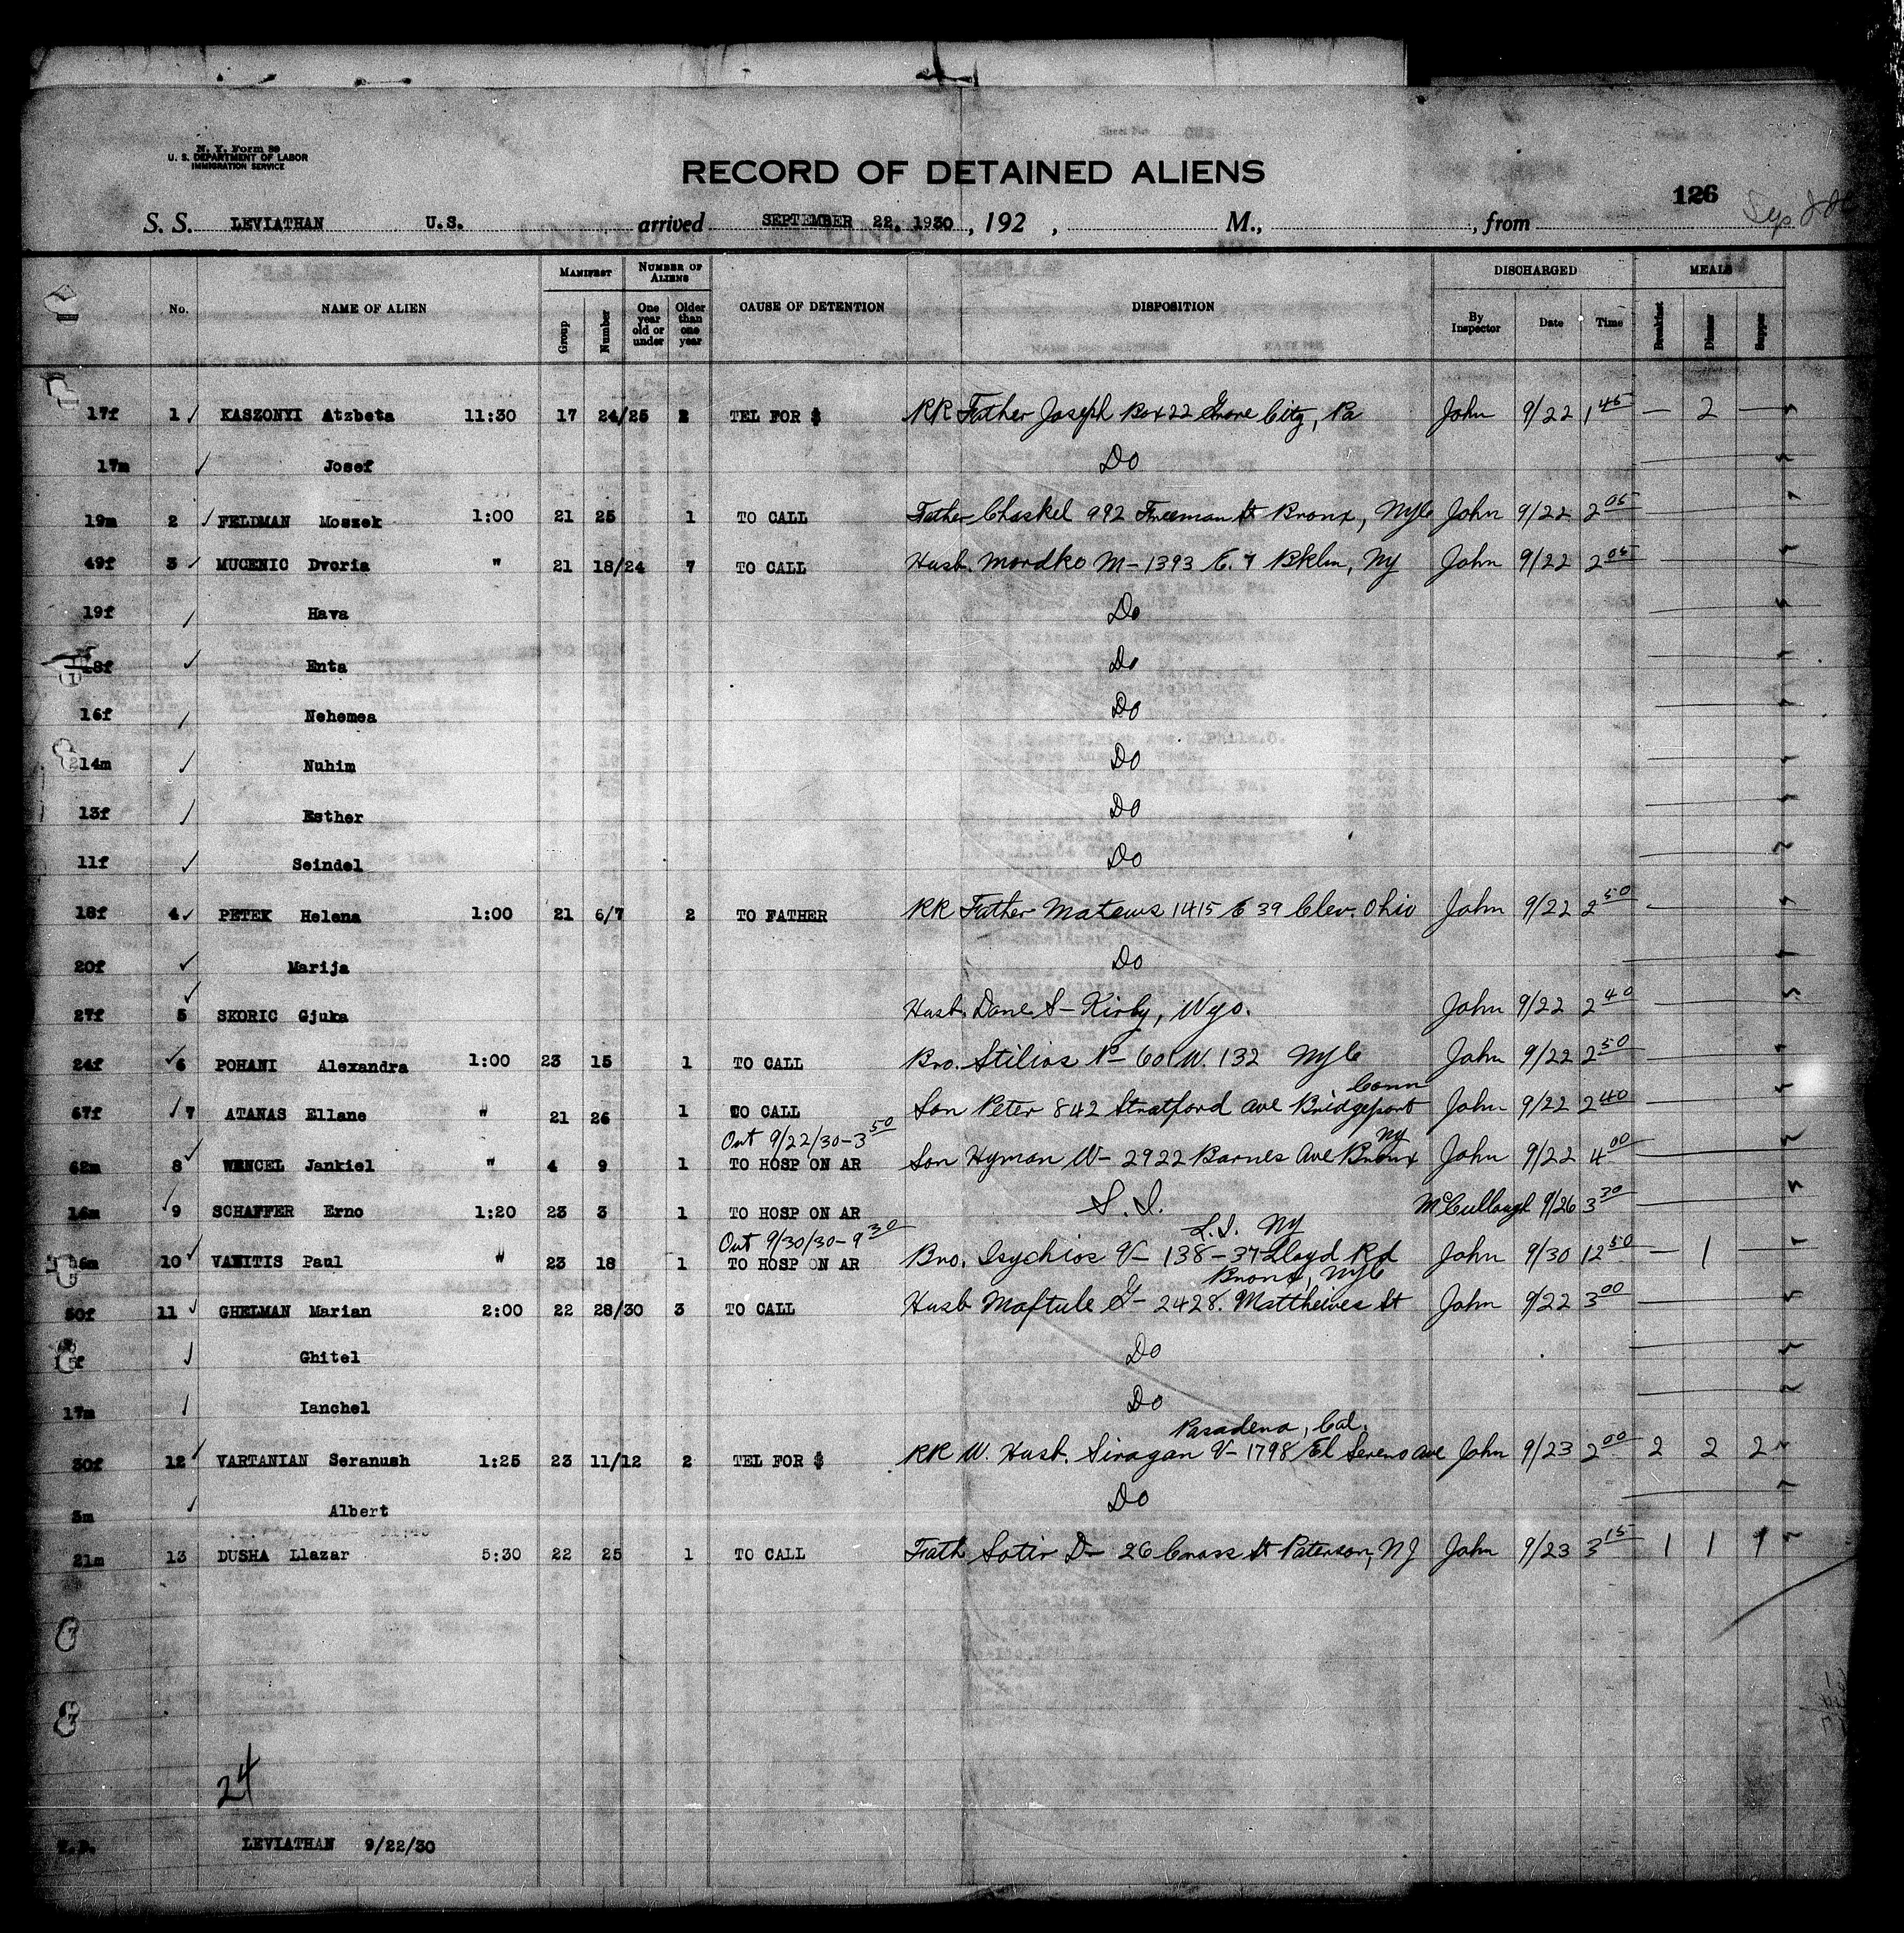 N. Y. Form 89
U. S. DEPARTMENT OF LABOR
IMMIGRATION SERVICE
RECORD OF DETAINED ALIENS
126
S. S. LEVIATHAN U.S. arrived SEPTEMBER 22, 1930, 192 , M., , from
No. NAME OF ALIEN MANIFEST NUMBER OF ALIENS CAUSE OF DETENTION DISPOSITION DISCHARGED MEALS
Group Number One year old or under Older than one year By Inspector Date Time Breakfast Dinner Supper
17f 1 KASZONYI Atzbeta 11:30 17 24/25 2 TEL FOR $ RR Father Joseph Box 22 Grove City, Pa John 9/22 1 45 — 2 —
17m Josef Do
19m 2 FELDMAN Moszek 1:00 21 25 1 TO CALL Father Chaskel 992 Freeman St Bronx, NYC John 9/22 2 05
49f 3 MUCENIC Dvoria " 21 18/24 7 TO CALL Husb. Mordko M- 1393 E. 7 Bklm, NY John 9/22 2 05
19f Hava Do
18f Enta Do
16f Nehemea Do
14m Nuhim Do
13f Esther Do
11f Seindel Do
18f 4 PETEK Helena 1:00 21 6/7 2 TO FATHER RR Father Mateus 1415 E 39 Clev. Ohio John 9/22 2 50
20f Marija Do
27f 5 SKORIC Gjuka Husb. Dane S- Kirby, Wyo. John 9/22 2 40
24f 6 POHANI Alexandra 1:00 23 15 1 TO CALL Bro. Stilios P- 601 W. 132 NYC John 9/22 2 50
67f 7 ATANAS Ellane " 21 26 1 TO CALL Son Peter 842 Stratford Ave Bridgeport Conn John 9/22 2 40
Out 9/22/30-3 50
62m 8 WENCEL Jankiel " 4 9 1 TO HOSP ON AR Son Hyman W- 2922 Barnes Ave Bronx NY John 9/22 4 00
16m 9 SCHAFFER Erno 1:20 23 3 1 TO HOSP ON AR S. I. McCullough 9/26 3 30
Out 9/30/30-9 30
10 VANITIS Paul " 23 18 1 TO HOSP ON AR Bro. Isychios V- 138-37 Lloyd Rd L.I. NY John 9/30 12 50 — 1 —
50f 11 GHELMAN Marian 2:00 22 28/30 3 TO CALL Husb Moftule G- 2428. Matthews St Bronx, NYC John 9/22 3 00
Ghitel Do
17m Ianchel Do
30f 12 VARTANIAN Seranush 1:25 23 11/12 2 TEL FOR $ RR W. Husb. Siragan V- 1798 El Sereno Ave Pasadena, Cal. John 9/23 2 00 2 2 2
3m Albert Do
21m 13 DUSHA Llazar 5:30 22 25 1 TO CALL Fath Sotir D- 26 Cross St Paterson, NJ John 9/23 3 15 1 1 1
24
LEVIATHAN 9/22/30